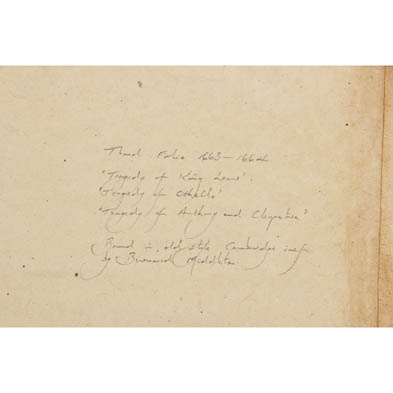 Third Folio 1663–1664
'Tragedy of King Lear'.
'Tragedy of Othello'
'Tragedy of Anthony and Cleopatra'
Bound in old style Cambridge calf
by Bernard Middleton